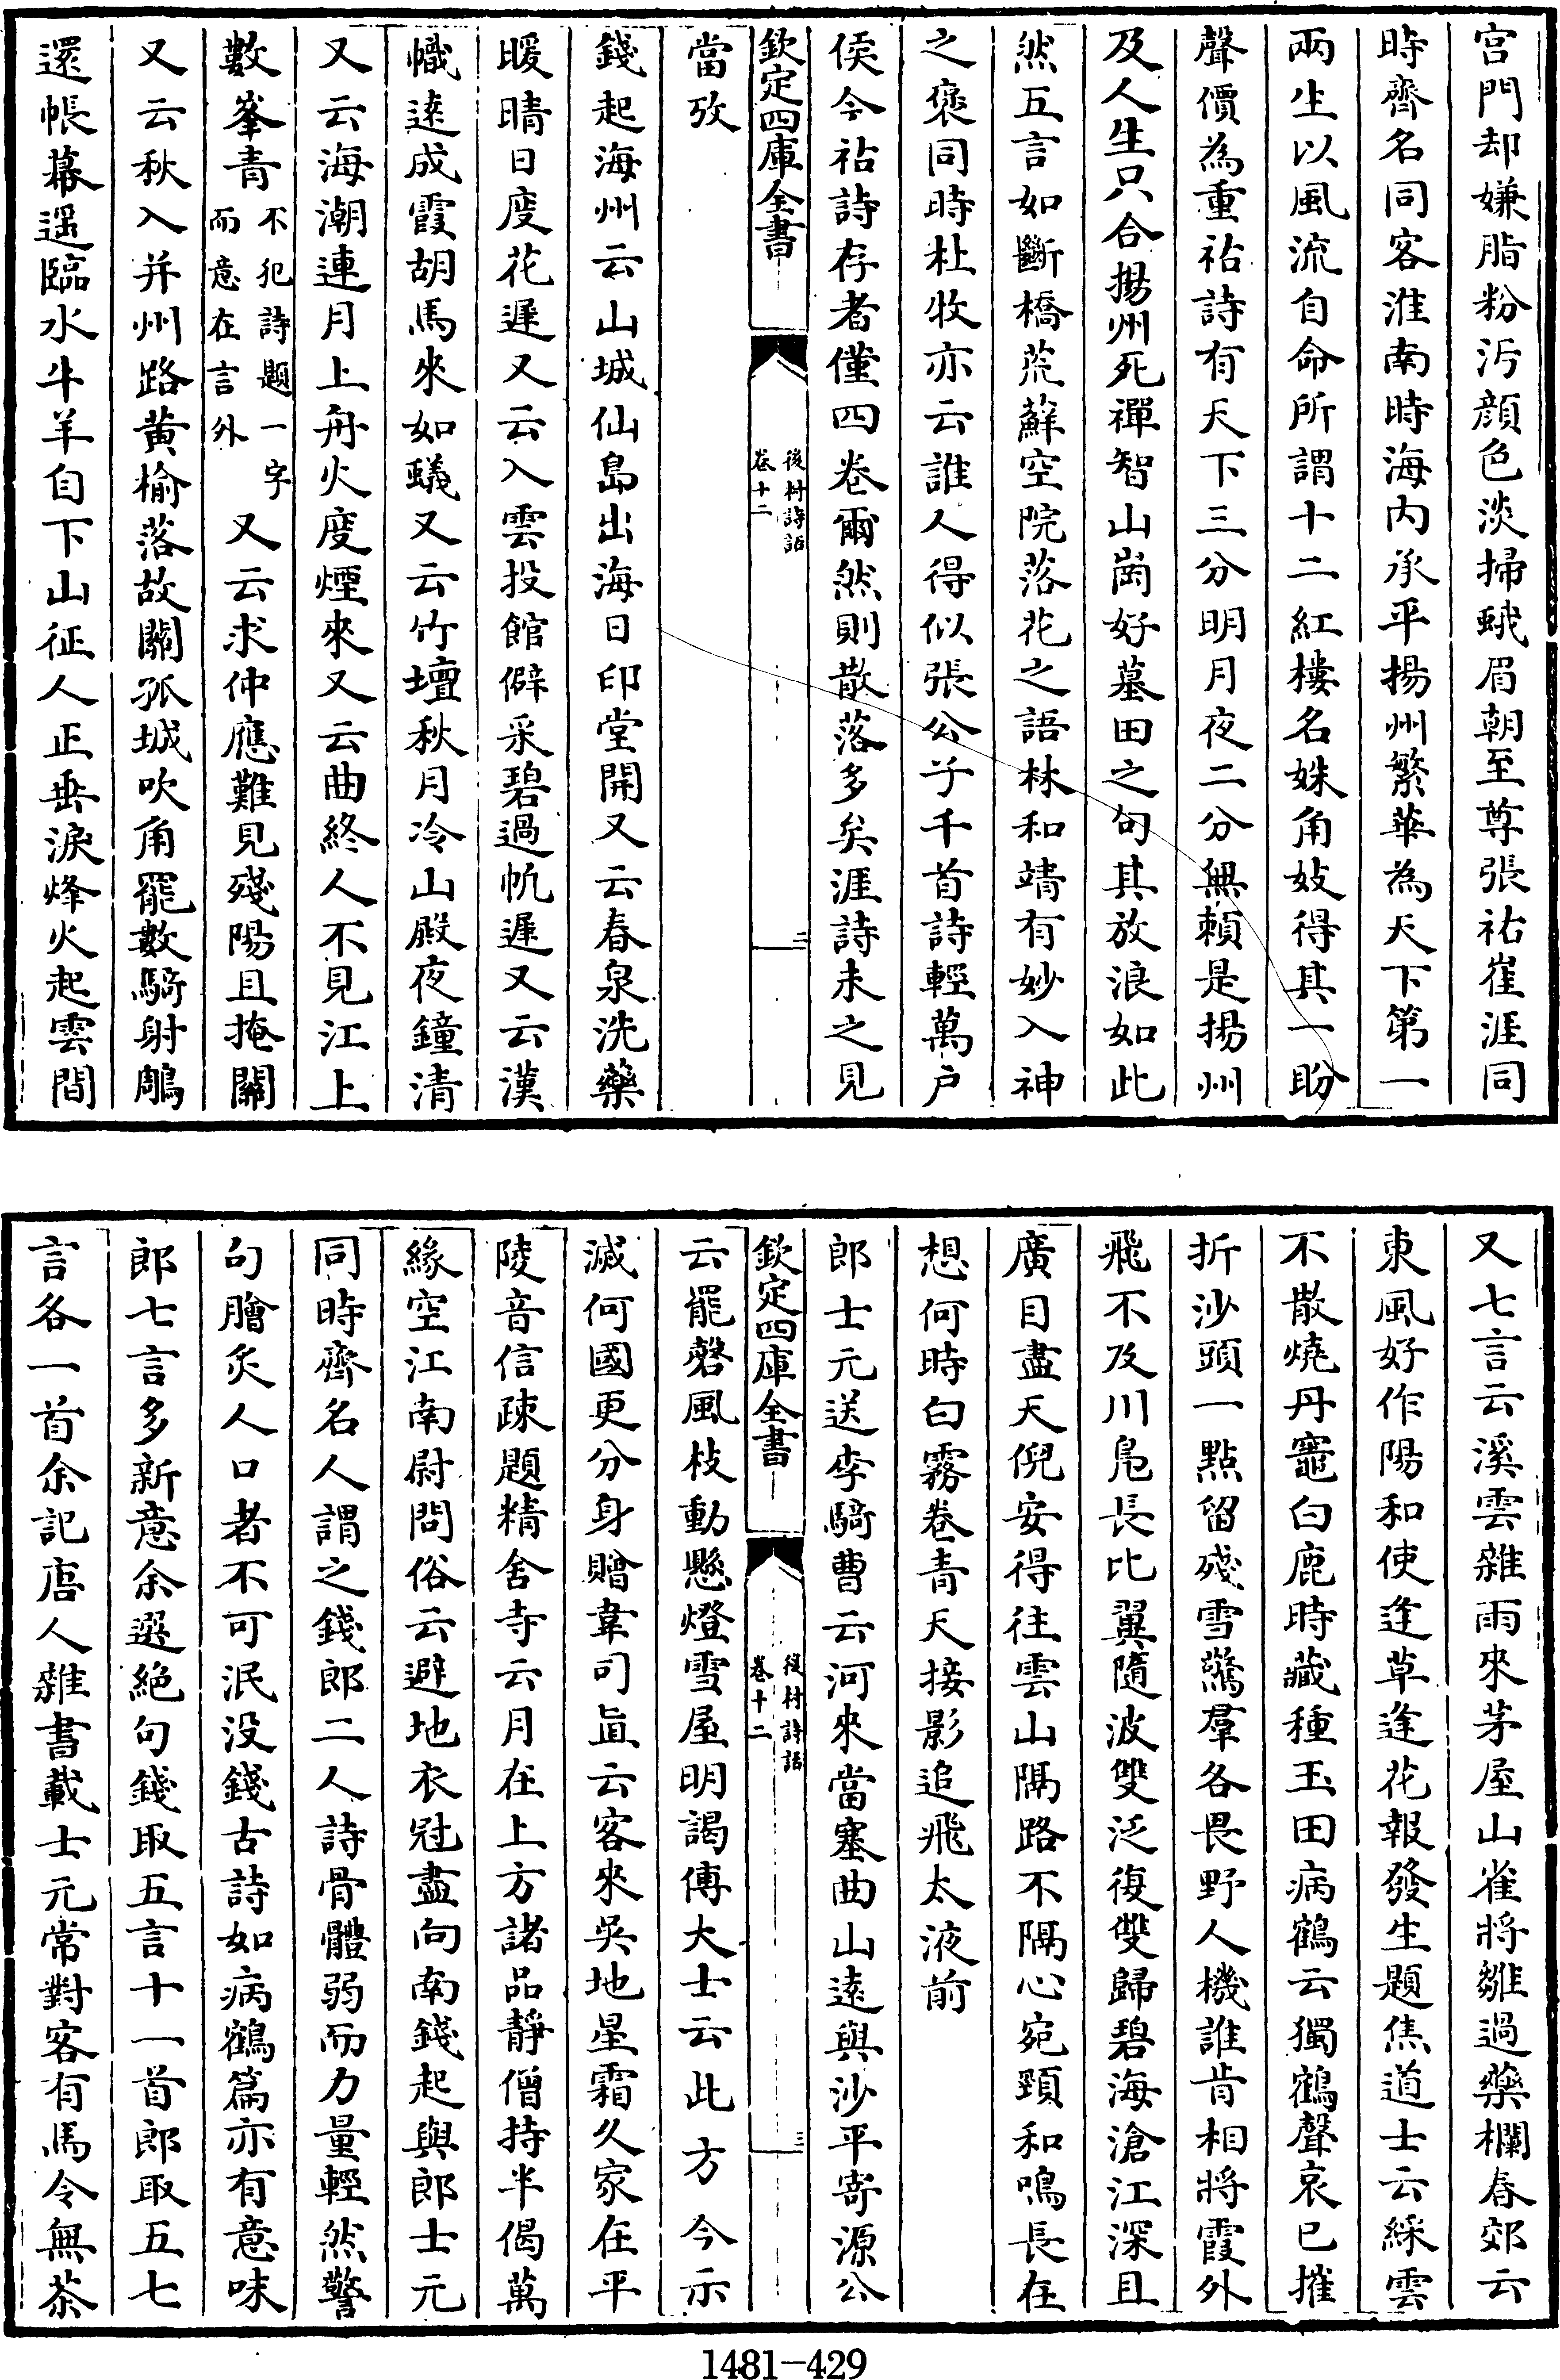 宫門却嫌脂粉汚顔色淡掃蛾眉朝至尊張祜崔涯同
時齊名同客淮南時海内承平揚州繁華為天下第一
兩生以風流自命所謂十二紅樓名姝角妓得其一盼
聲價為重祜詩有天下三分明月夜二分無賴是揚州
及人生只合揚州死禪智山崗好墓田之句其放浪如此
然五言如斷橋荒蘚空院落花之語林和靖有妙入神
之褒同時杜牧亦云誰人得似張公子千首詩輕萬户
侯今祜詩存者僅四卷爾然則散落多矣涯詩未之見
欽定四庫全書
後村詩話
卷十二
二
當攷
錢起海州云山城仙島出海日印堂開又云春泉洗藥
暖晴日度花遲又云入雲投館僻采碧過帆遲又云漢
幟逺成霞胡馬來如蟻又云竹壇秋月冷山殿夜鐘清
又云海潮連月上舟火度煙來又云曲終人不見江上
數峯青不犯詩題一字而意在言外又云求仲應難見殘陽且掩關
又云秋入并州路黄榆落故關孤城吹角罷數騎射鵰
還帳幕遥臨水牛羊自下山征人正垂淚烽火起雲間
又七言云溪雲雜雨來茅屋山雀將雛過藥欄春郊云
東風好作陽和使逢草逢花報發生題焦道士云綵雲
不散燒丹竈白鹿時藏種玉田病鶴云獨鶴聲哀已摧
折沙頭一點留殘雪驚羣各畏野人機誰肯相將霞外
飛不及川鳧長比翼隨波雙泛復雙歸碧海滄江深且
廣目盡天倪安得往雲山隔路不隔心宛頸和鳴長在
想何時白霧卷青天接影追飛太液前
郎士元送李騎曹云河來當塞曲山逺與沙平寄源公
欽定四庫全書
後村詩話
卷十二
三
云罷磬風枝動懸燈雪屋明謁傅大士云此方今示
滅何國更分身贈韋司直云客來吳地星霜久家在平
陵音信疎題精舍寺云月在上方諸品靜僧持半偈萬
緣空江南尉問俗云避地衣冠盡向南錢起與郎士元
同時齊名人謂之錢郎二人詩骨體弱而力量輕然警
句膾炙人口者不可泯没錢古詩如病鶴篇亦有意味
郎七言多新意余選絶句錢取五言十一首郎取五七
言各一首余記唐人雜書載士元常對客有馬令無茶
1481-429